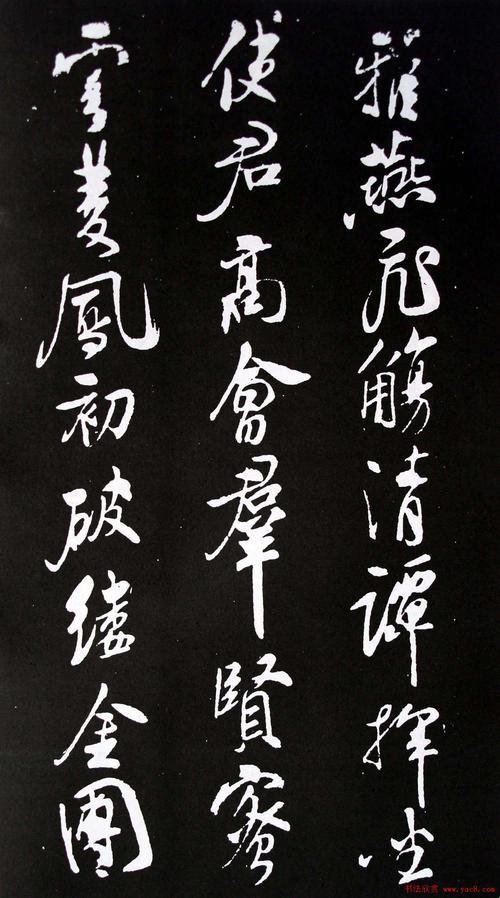 雅燕飛觴清譚揮坐
使君高會羣賢蜜
雲雙鳳初破縷金團
书法欣赏 www.yac8.com